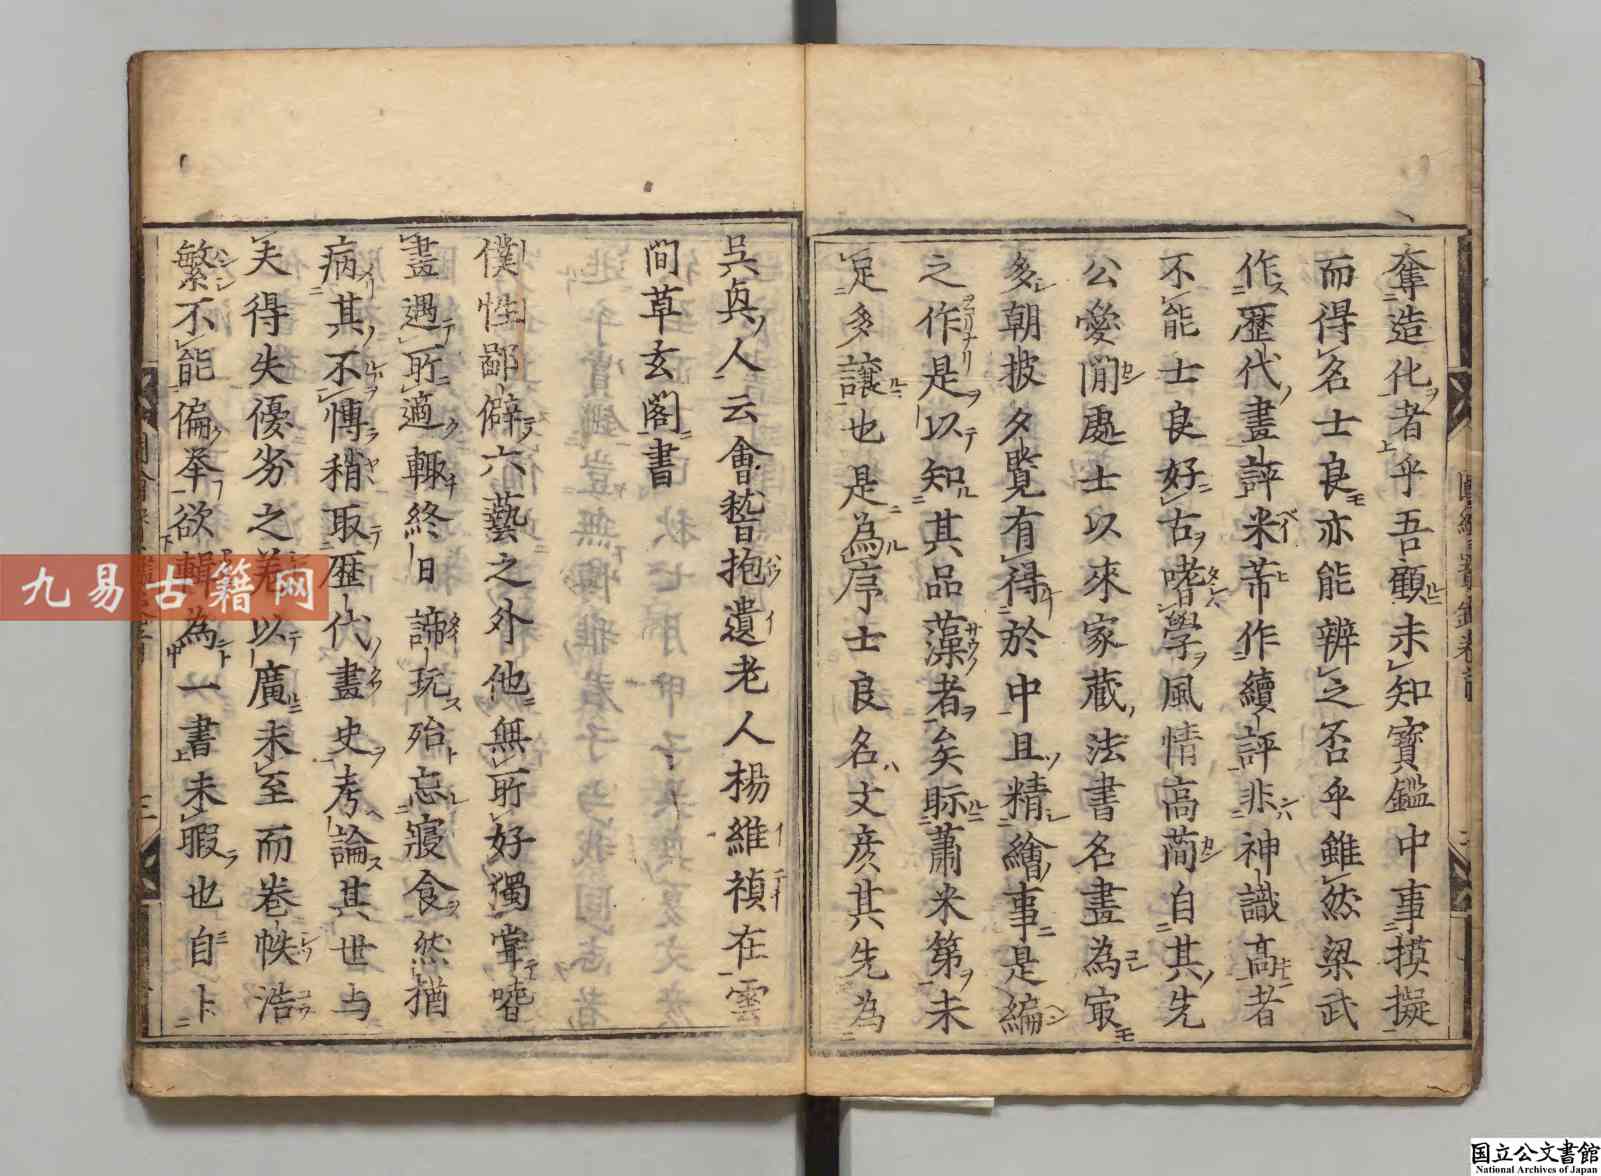 奪造化者乎吾顧未知寶鑑中事摸擬
而得名士良亦能辨之否乎雖然梁武
作歷代畫評米芾作續評非神識高者
不能士良好古嗜學風情高簡自其先
公愛閒處士以來家藏法書名畫為㝡
多朝披夕覧有得於中且精繪事是編
之作是以知其品藻者矣眎蕭米第未
足多譲也是為序士良名文彦其先為
吳興人云會嵇抱遺老人楊維禎在雲
間草玄閣書
僕性鄙僻六藝之外他無所好獨嘗嗜
畫遇所適輙終日諦玩殆忘寢食然猶
病其不慱稍取歴代畫史考論其世与
夫得失優劣之差以廣未至而卷帙浩
繁不能偏举欲輯為一書未暇也自卜
九易古籍网
国立公文書館
National Archives of Japan